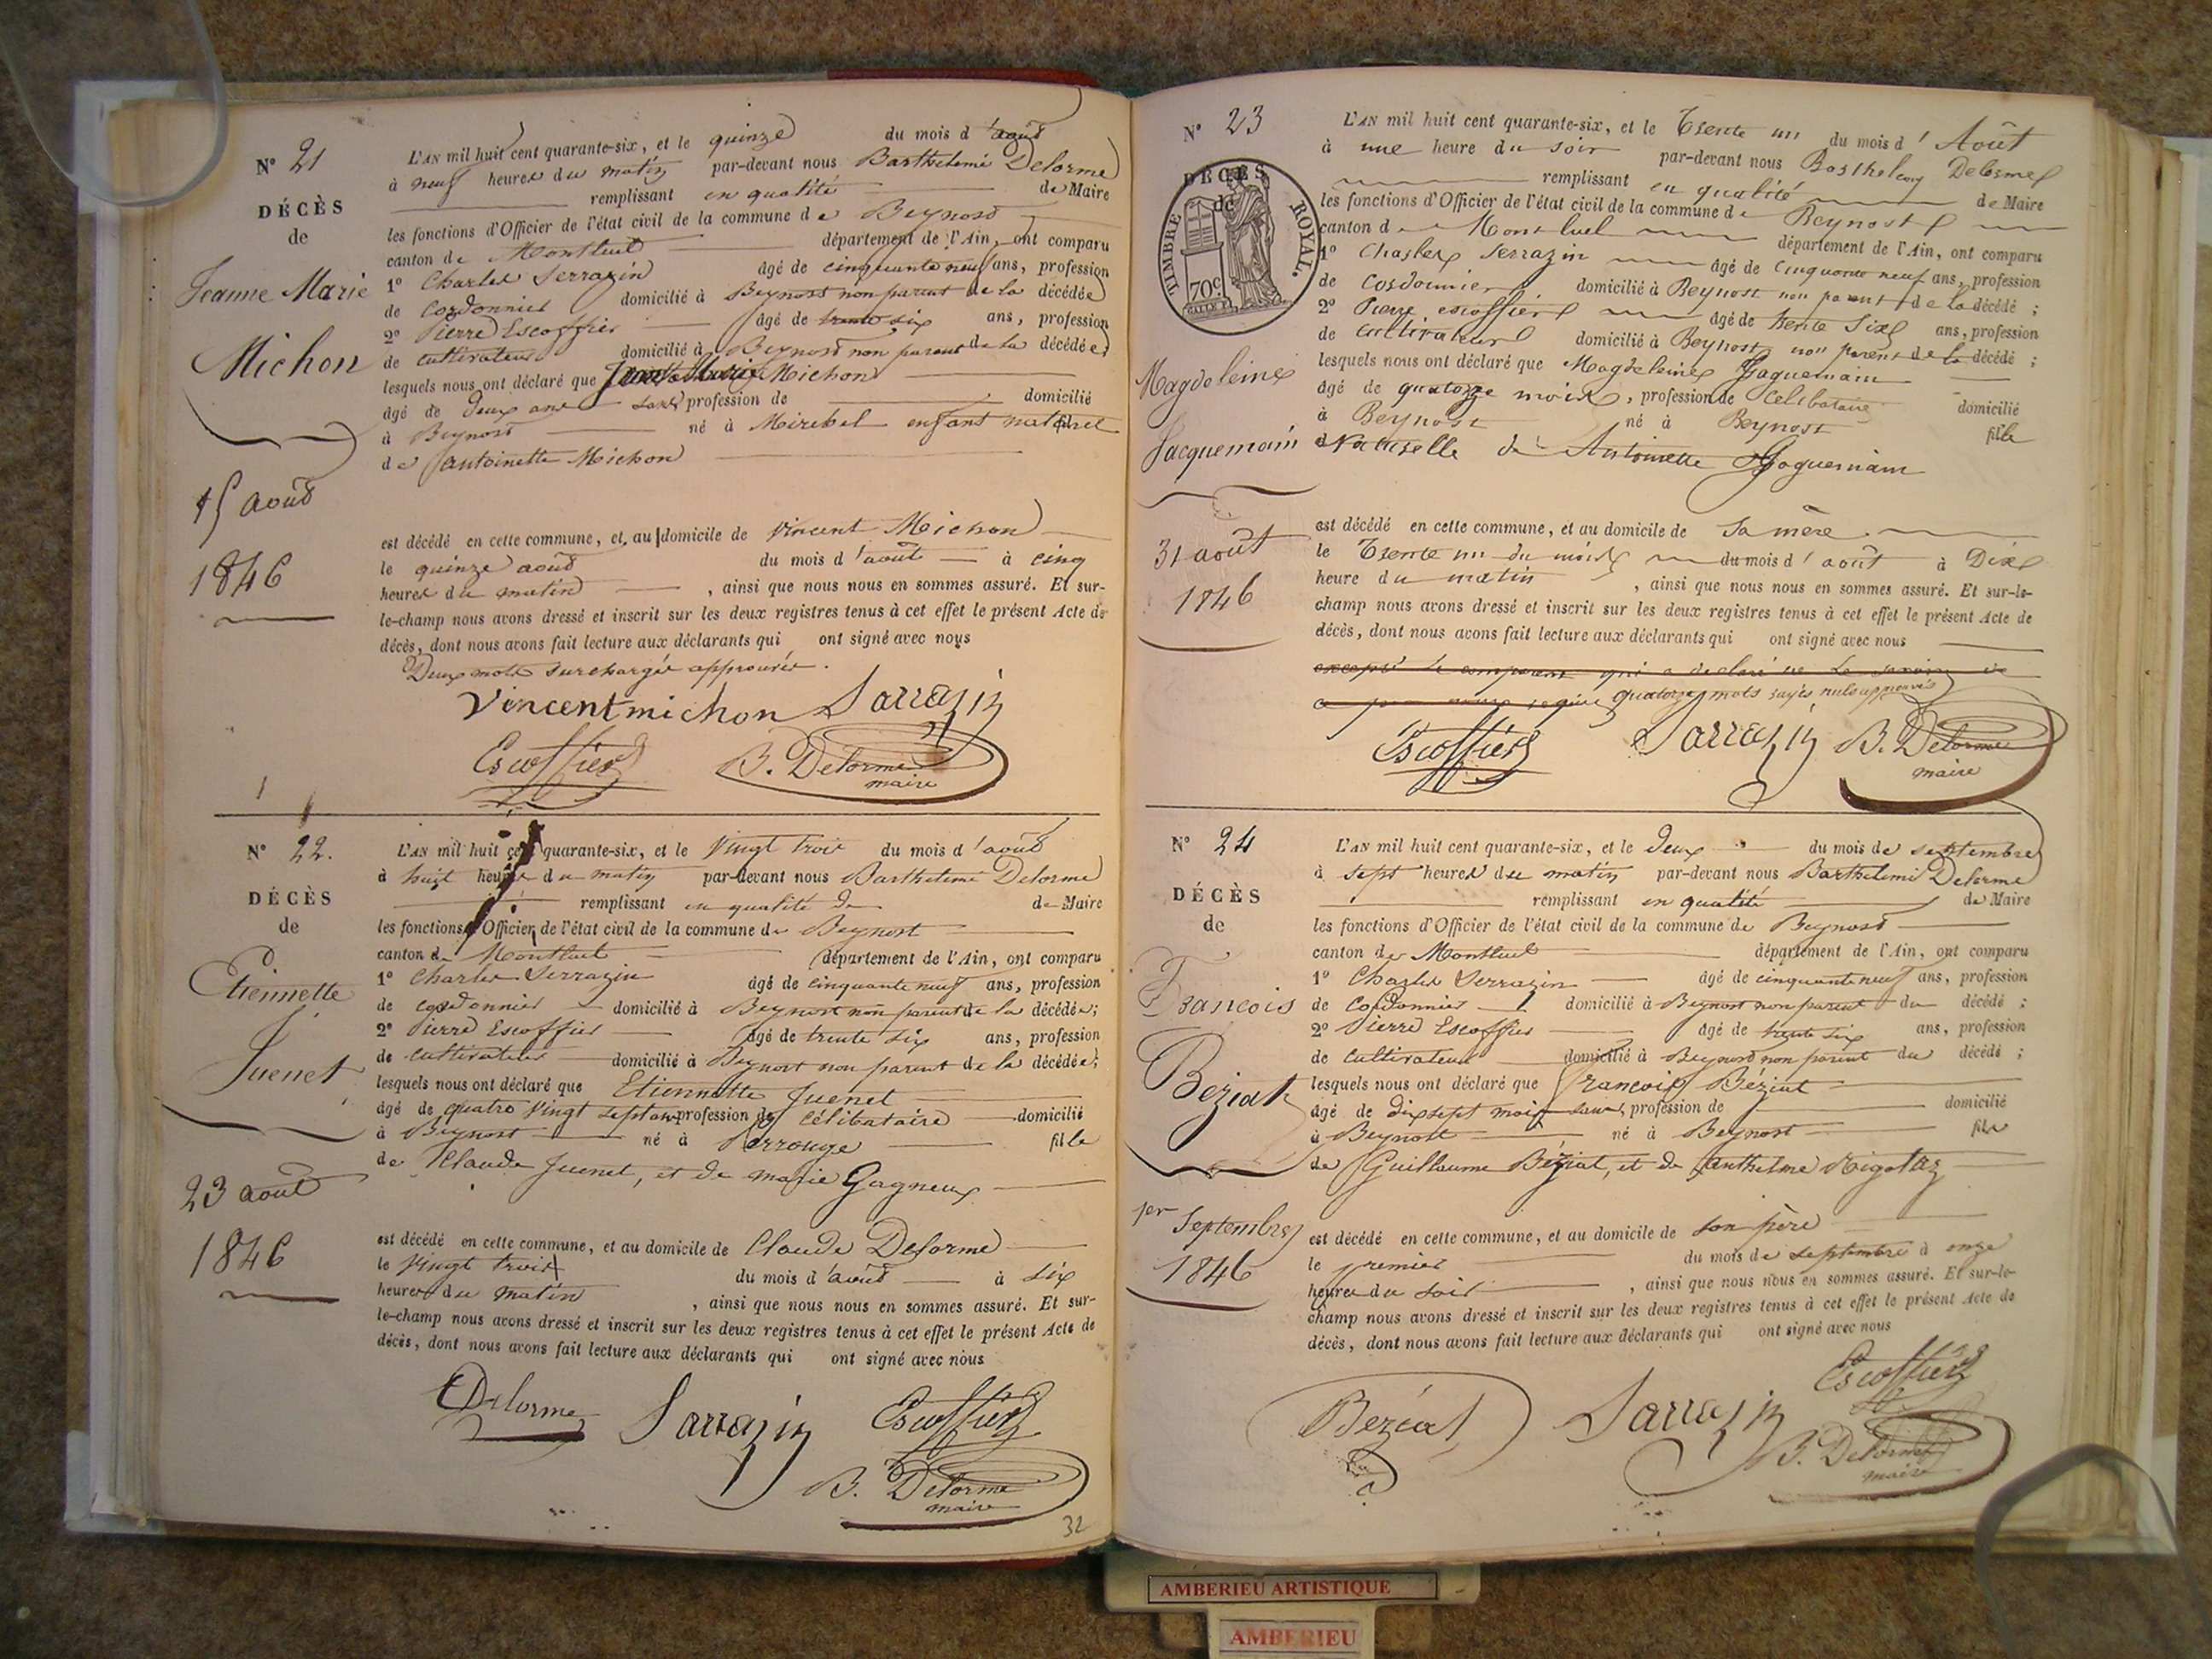 N° 21
DÉCÈS
de
Jeanne Marie
Michon
15 août
1846
L'AN mil huit cent quarante-six, et le quinze du mois d'août
à neuf heures du matin par-devant nous Barthelemi Delorme
remplissant en qualité de Maire
les fonctions d'Officier de l'état civil de la commune de Beynost
canton de Montluel département de l'Ain, ont comparu
1° Charles Serrazin âgé de cinquante neuf ans, profession
de cordonnier domicilié à Beynost non parent de la décédée
2° Pierre Escoffier âgé de trente six ans, profession
de cultivateur domicilié à Beynost non parent de la décédée;
lesquels nous ont déclaré que Jeanne Marie Michon
âgé de deux ans sans profession de domicilié
à Beynost né à Miribel enfant naturel
de antoinette Michon
est décédé en cette commune, et au domicile de Vincent Michon
le quinze août du mois d'août à cinq
heures du matin, ainsi que nous nous en sommes assuré. Et sur-
le-champ nous avons dressé et inscrit sur les deux registres tenus à cet effet le présent Acte de
décès, dont nous avons fait lecture aux déclarants qui ont signé avec nous
Deux mots surchargés approuvés.
Vincent michon Sarrazin
Escoffier B. Delorme
maire
N° 22.
DÉCÈS
de
Etiennette
Juenet
23 août
1846
L'AN mil huit cent quarante-six, et le vingt trois du mois d'août
à huit heures du matin par-devant nous Barthelemi Delorme
remplissant en qualité de de Maire
les fonctions d'Officier de l'état civil de la commune de Beynost
canton de Montluel département de l'Ain, ont comparu
1° Charles Serrazin âgé de cinquante neuf ans, profession
de cordonnier domicilié à Beynost non parent de la décédée;
2° Pierre Escoffier âgé de trente six ans, profession
de cultivateur domicilié à Beynost non parent de la décédée;
lesquels nous ont déclaré que Etiennette Juenet
âgé de quatre vingt sept ans profession de célibataire domicilié
à Beynost né à Perrouge fille
de Claude Juenet, et de marie Gagneux
est décédé en cette commune, et au domicile de Claude Delorme
le vingt trois du mois d'août à six
heures du matin, ainsi que nous nous en sommes assuré. Et sur-
le-champ nous avons dressé et inscrit sur les deux registres tenus à cet effet le présent Acte de
décès, dont nous avons fait lecture aux déclarants qui ont signé avec nous
Delorme Sarrazin Escoffier
B. Delorme
maire
32
N° 23
DÉCÈS
de
TIMBRE ROYAL.
70c
Magdeleine
Jacquemain
31 août
1846
L'AN mil huit cent quarante-six, et le Trente un du mois d'Août
à une heure du soir par-devant nous Barthelemy Delorme
remplissant en qualité de Maire
les fonctions d'Officier de l'état civil de la commune de Beynost
canton de Montluel département de l'Ain, ont comparu
1° Charles Serrazin âgé de Cinquante neuf ans, profession
de cordonnier domicilié à Beynost non parent de la décédé;
2° Pierre escoffier âgé de trente six ans, profession
de cultivateur domicilié à Beynost non parent de la décédé;
lesquels nous ont déclaré que Magdeleine Jaquemain
âgé de quatorze mois, profession de Celibataire domicilié
à Beynost né à Beynost fille
Naturelle de Antoinette Jaquemain
est décédé en cette commune, et au domicile de sa mère
le Trente un du mois du mois d'août à Dix
heure du matin, ainsi que nous nous en sommes assuré. Et sur-le-
champ nous avons dressé et inscrit sur les deux registres tenus à cet effet le présent Acte de
décès, dont nous avons fait lecture aux déclarants qui ont signé avec nous
excepté le comparant qui a déclaré ne le savoir
quatorze mots rayés nuls approuvés
Escoffier Sarrazin B. Delorme
maire
N° 24
DÉCÈS
de
Francois
Beziat
1er Septembre
1846
L'AN mil huit cent quarante-six, et le deux du mois de septembre
à sept heures du matin par-devant nous Barthelemi Delorme
remplissant en qualité de Maire
les fonctions d'Officier de l'état civil de la commune de Beynost
canton de Montluel département de l'Ain, ont comparu
1° Charles Serrazin âgé de cinquante neuf ans, profession
de cordonnier domicilié à Beynost non parent du décédé;
2° Pierre Escoffier âgé de trente six ans, profession
de cultivateur domicilié à Beynost non parent du décédé;
lesquels nous ont déclaré que françois Béziat
âgé de dix sept mois sans profession de domicilié
à Beynost né à Beynost fils
de Guillaume Béziat, et de anthelme Rigolaz
est décédé en cette commune, et au domicile de son père
le premier du mois de septembre à onze
heures du soir, ainsi que nous nous en sommes assuré. Et sur-le-
champ nous avons dressé et inscrit sur les deux registres tenus à cet effet le présent Acte de
décès, dont nous avons fait lecture aux déclarants qui ont signé avec nous
Escoffier
Beziat Sarrazin
B. Delorme
maire
AMBERIEU ARTISTIQUE
AMBERIEU